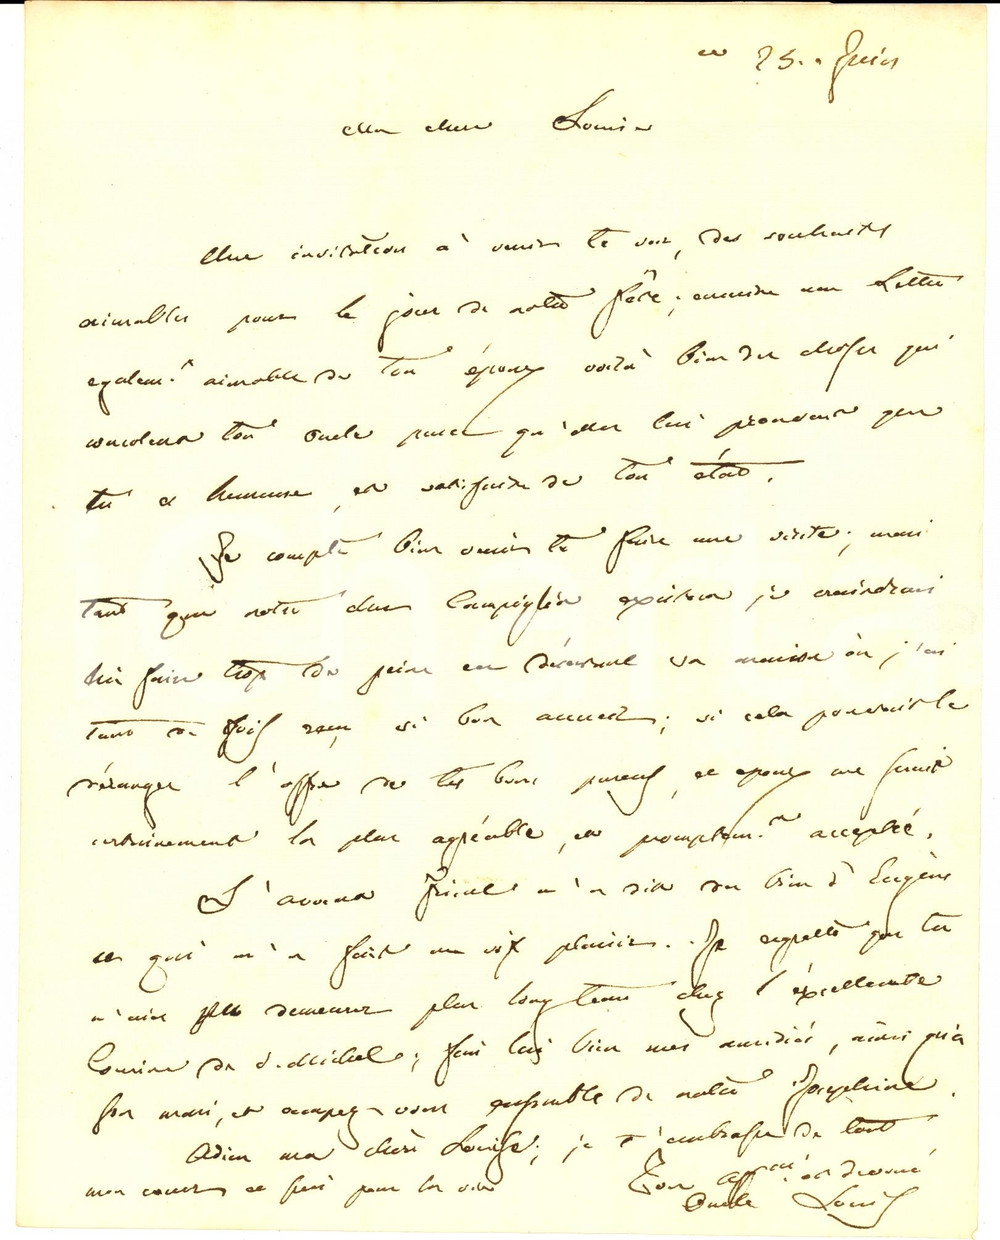 ce 25. Juin
Ma chere Louise
Une invitation à venir te voir, des souhaits
aimables pour le jour de notre fête, ensuite une Lettre
egalem.t aimable de ton époux voilà bien des choses qui
ton oncle parce qu'elles lui prouvent que
tu es heureuse, et satisfaite de ton état.
Je compte bien venir te faire une visite; mais
tant que notre cher existera je craindrais
lui faire trop de peine en désertant sa maison où j'ai
tant de fois reçu si bon accueil; si cela pouvait se
déranger l'offre de tes bons parens, et epoux me serait
certainement la plus agréable, et promptem.t acceptée.
L'avocat m'a dit du bien d'Eugène
ce qui m'a fait un vif plaisir. Je regrette que tu
n'aies pu demeurer plus longtems chez l'excellente
Cousine de S. Michel; fais lui bien mes amitiés, ainsi qu'à
son mari, et occupez vous ensemble de notre Josephine.
Adieu ma chère Louise; je t'embrasse de tout
mon coeur et suis pour la vie
Ton aff.né et devoué
Oncle Louis